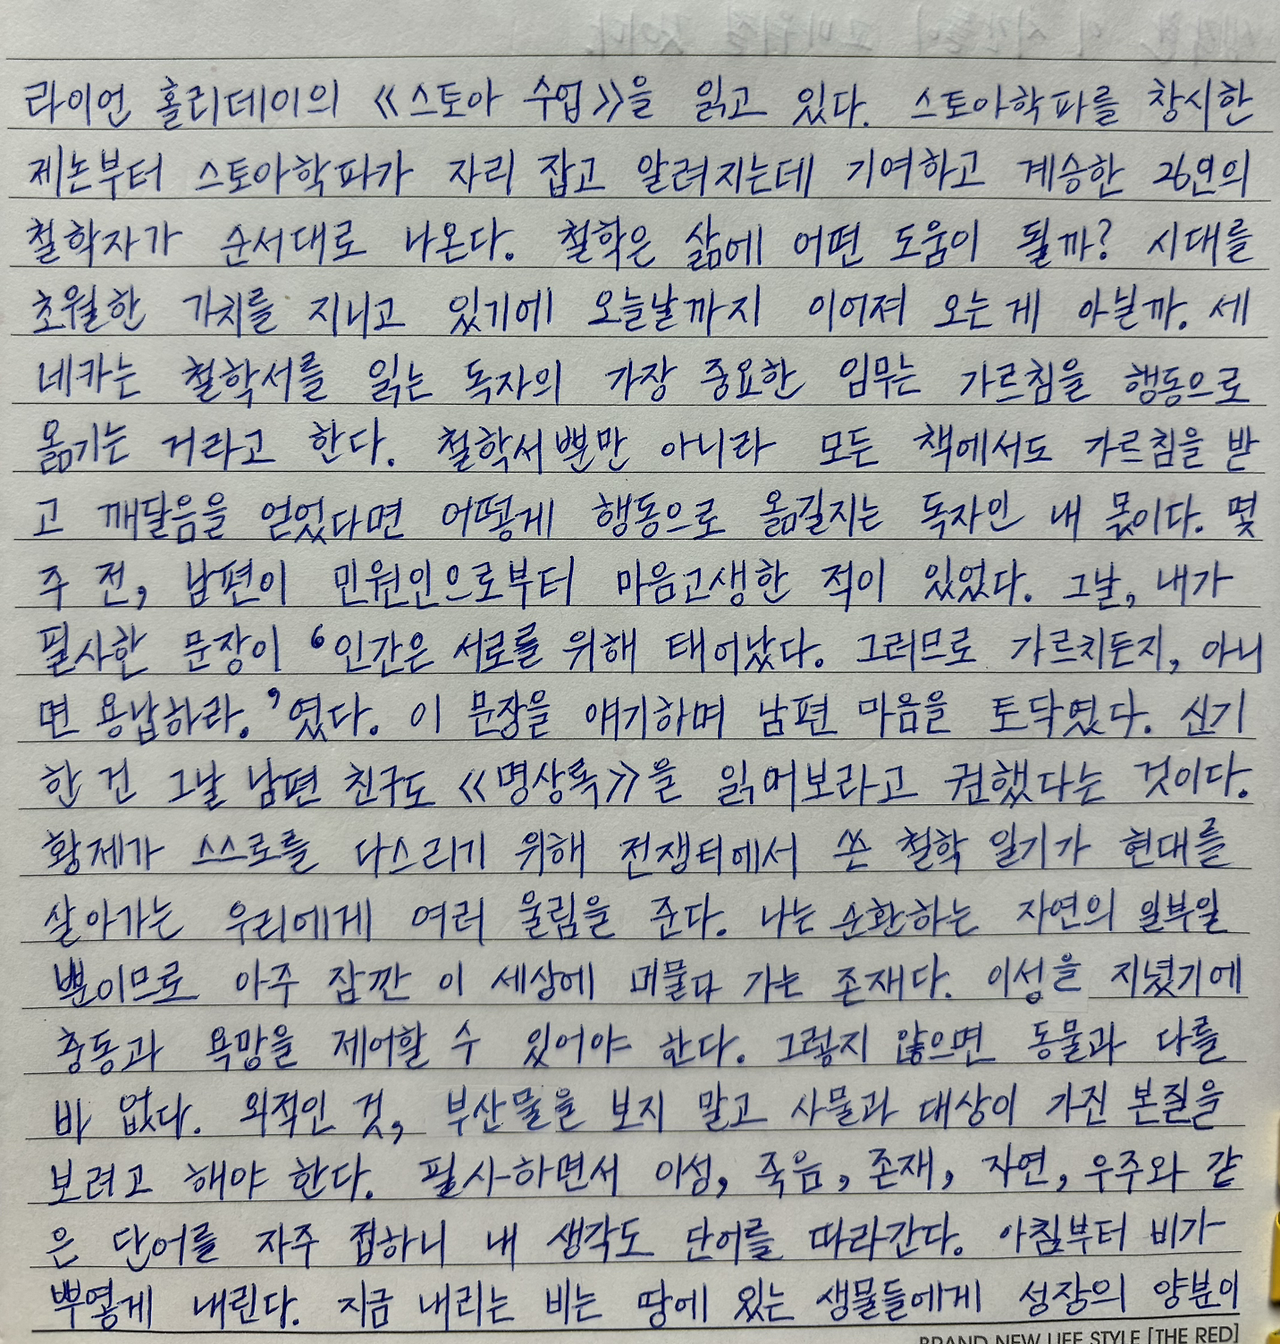 라이언 홀리데이의 《스토아 수업》을 읽고 있다. 스토아학파를 창시한
제논부터 스토아학파가 자리 잡고 알려지는데 기여하고 계승한 26인의
철학자가 순서대로 나온다. 철학은 삶에 어떤 도움이 될까? 시대를
초월한 가치를 지니고 있기에 오늘날까지 이어져 오는 게 아닐까. 세
네카는 철학서를 읽는 독자의 가장 중요한 임무는 가르침을 행동으로
옮기는 거라고 한다. 철학서뿐만 아니라 모든 책에서도 가르침을 받
고 깨달음을 얻었다면 어떻게 행동으로 옮길지는 독자인 내 몫이다. 몇
주 전, 남편이 민원인으로부터 마음고생한 적이 있었다. 그날, 내가
필사한 문장이 '인간은 서로를 위해 태어났다. 그러므로 가르치든지, 아니
면 용납하라.'였다. 이 문장을 얘기하며 남편 마음을 토닥였다. 신기
한 건 그날 남편 친구도 《명상록》을 읽어보라고 권했다는 것이다.
황제가 스스로를 다스리기 위해 전쟁터에서 쓴 철학 일기가 현대를
살아가는 우리에게 여러 울림을 준다. 나는 순환하는 자연의 일부일
뿐이므로 아주 잠깐 이 세상에 머물다 가는 존재다. 이성을 지녔기에
충동과 욕망을 제어할 수 있어야 한다. 그렇지 않으면 동물과 다를
바 없다. 외적인 것, 부산물을 보지 말고 사물과 대상이 가진 본질을
보려고 해야 한다. 필사하면서 이성, 죽음, 존재, 자연, 우주와 같
은 단어를 자주 접하니 내 생각도 단어를 따라간다. 아침부터 비가
뿌옇게 내린다. 지금 내리는 비는 땅에 있는 생물들에게 성장의 양분이
BRAND NEW LIFE STYLE [THE RED]